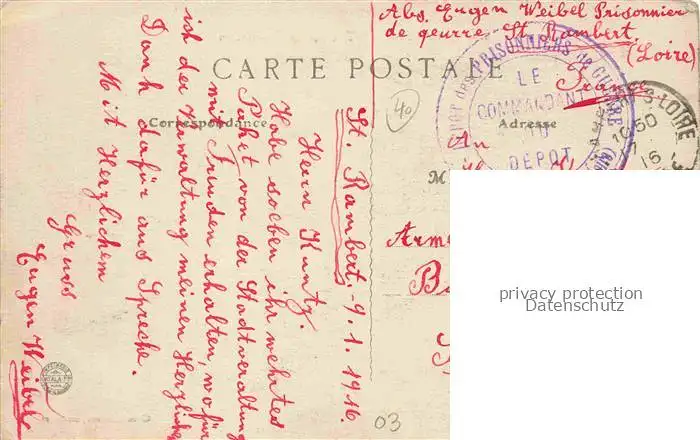 Abs. Eugen Weibel Prisonnier
de geurre St. Rambert
(Loire)
France
CARTE POSTALE
Correspondance
Adresse
DEPOT des PRISONNIERS de GUERRE
LE
COMMANDANT
DU
DEPOT
LOIRE
10 50
16
40
An
M
Arme
St. Rambert. 9.1.1916.
Herrn Kuntz.
Habe soeben ihr wehrtes
Paket von der Stadtverwaltung
mit Freuden erhalten, wofür
ich der Verwaltung meinen Herzlich
Dank dafür aus Spreche.
Mit Herzlichem
Gruss
Eugen Weibel
03
privacy protection
Datenschutz